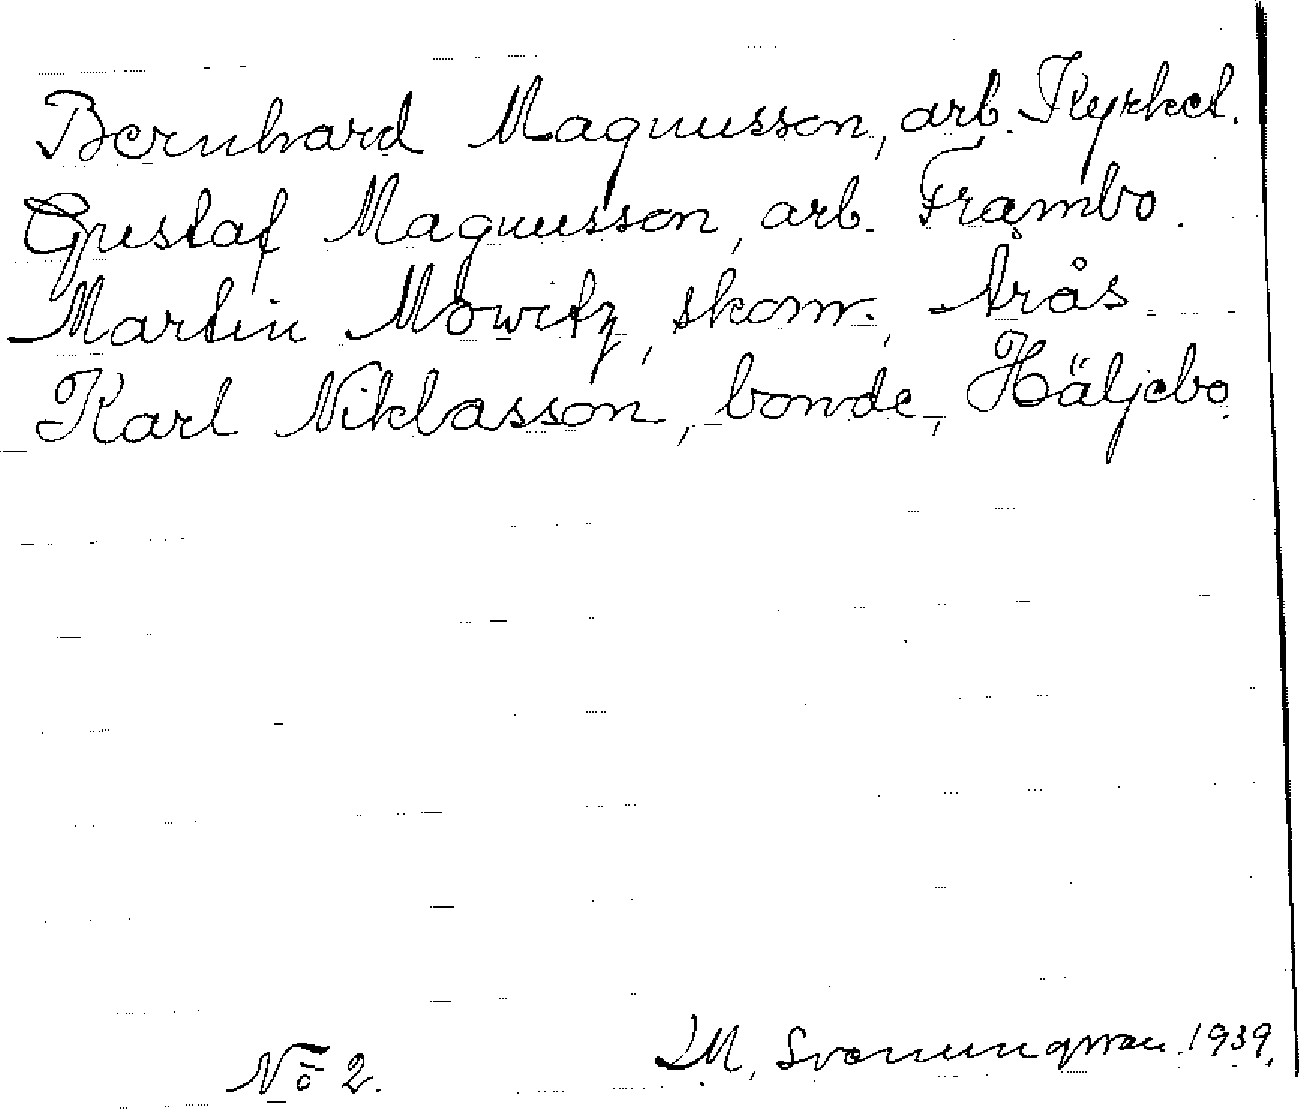 Bernhard Magnusson, arb. Kyrkef.
Gustaf Magnusson, arb. Främbo.
Martin Mowitz, skom., Arås
Karl Niklasson, bonde, Häljebo.
No 2. 1939.